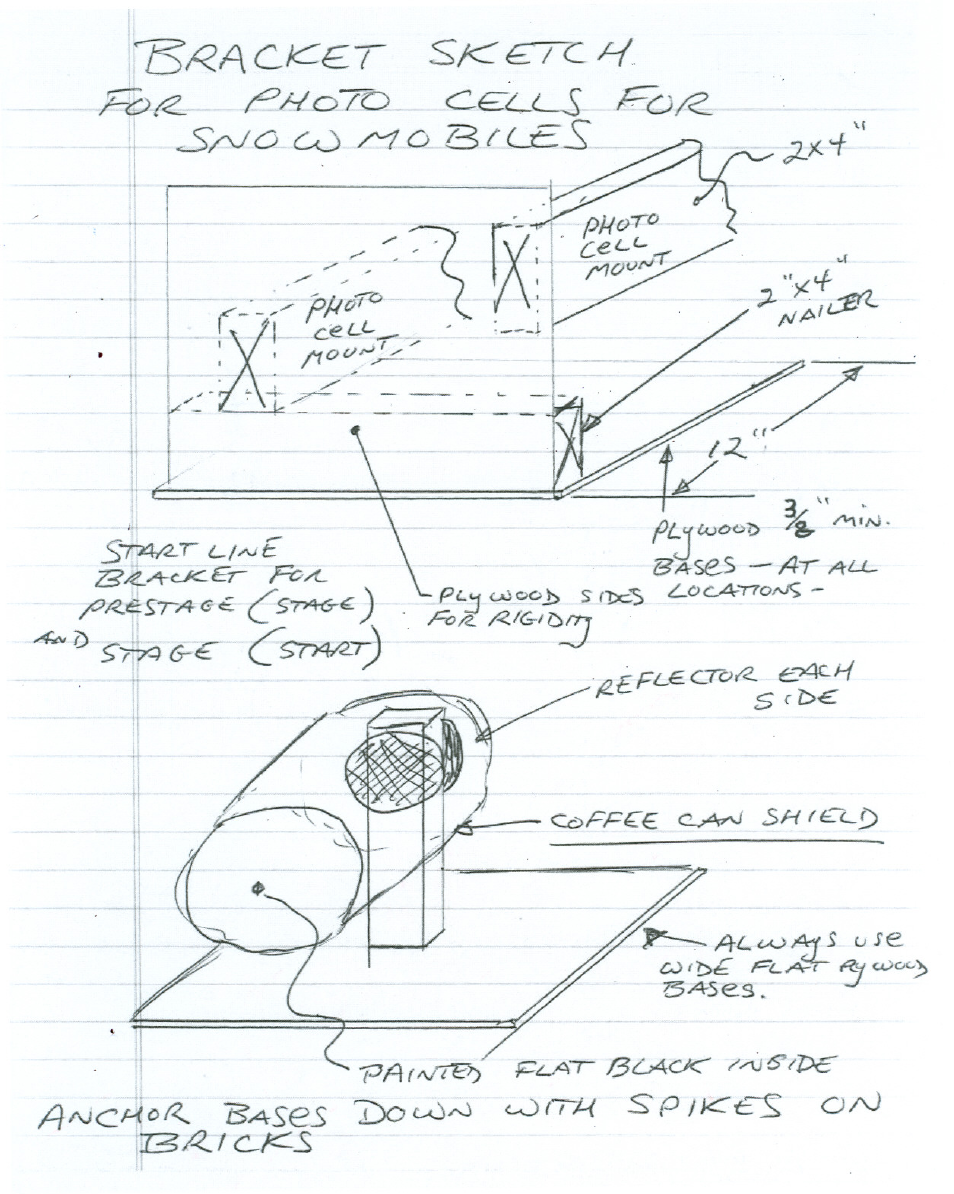 BRACKET SKETCH
FOR PHOTO CELLS FOR
SNOWMOBILES
2x4"
PHOTO
CELL
MOUNT
PHOTO
CELL
MOUNT
2"x4"
NAILER
12"
PLYWOOD 3/8" MIN.
BASES - AT ALL
LOCATIONS -
START LINE
BRACKET FOR
PRESTAGE (STAGE)
AND STAGE (START)
PLYWOOD SIDES
FOR RIGIDITY
REFLECTOR EACH
SIDE
COFFEE CAN SHIELD
ALWAYS USE
WIDE FLAT PLYWOOD
BASES.
PAINTED FLAT BLACK INSIDE
ANCHOR BASES DOWN WITH SPIKES ON
BRICKS